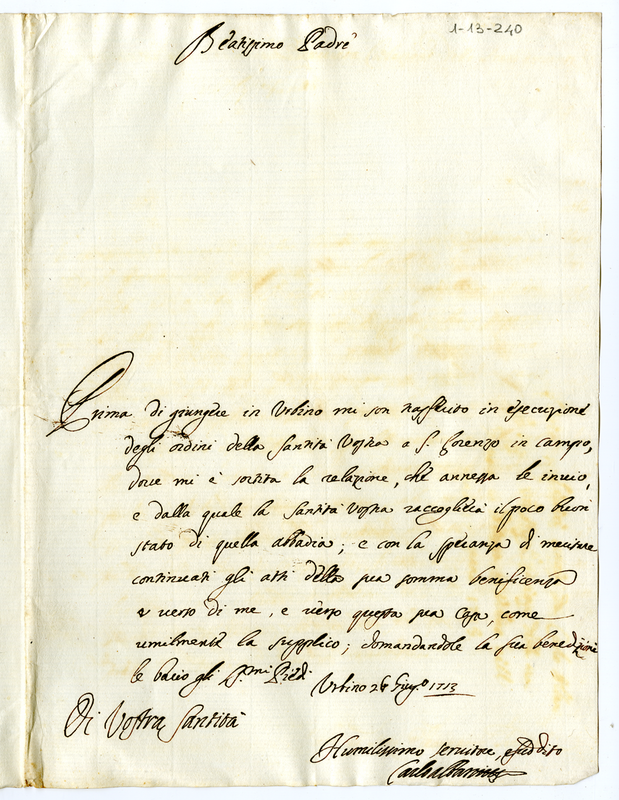 1-13-240
Beatissimo Padre
Prima di giungere in Urbino mi son trasferito in esecuzione
degli ordini della Santità Vostra a S. Lorenzo in campo,
dove mi è sortita la relazione, che annessa le invio,
e dalla quale la Santità Vostra raccoglierà il poco buon
stato di quella abbadia; e con la speranza di meritare
continuati gli atti della sua somma beneficenza
verso di me, e verso questa sua Casa, come
umilmente la supplico; domandandole la sua benedizione
le bacio gli S.mi Piedi
Urbino 26 Giug.o 1713
Di Vostra Santità
Humilissimo servitore, e suddito
Carlo